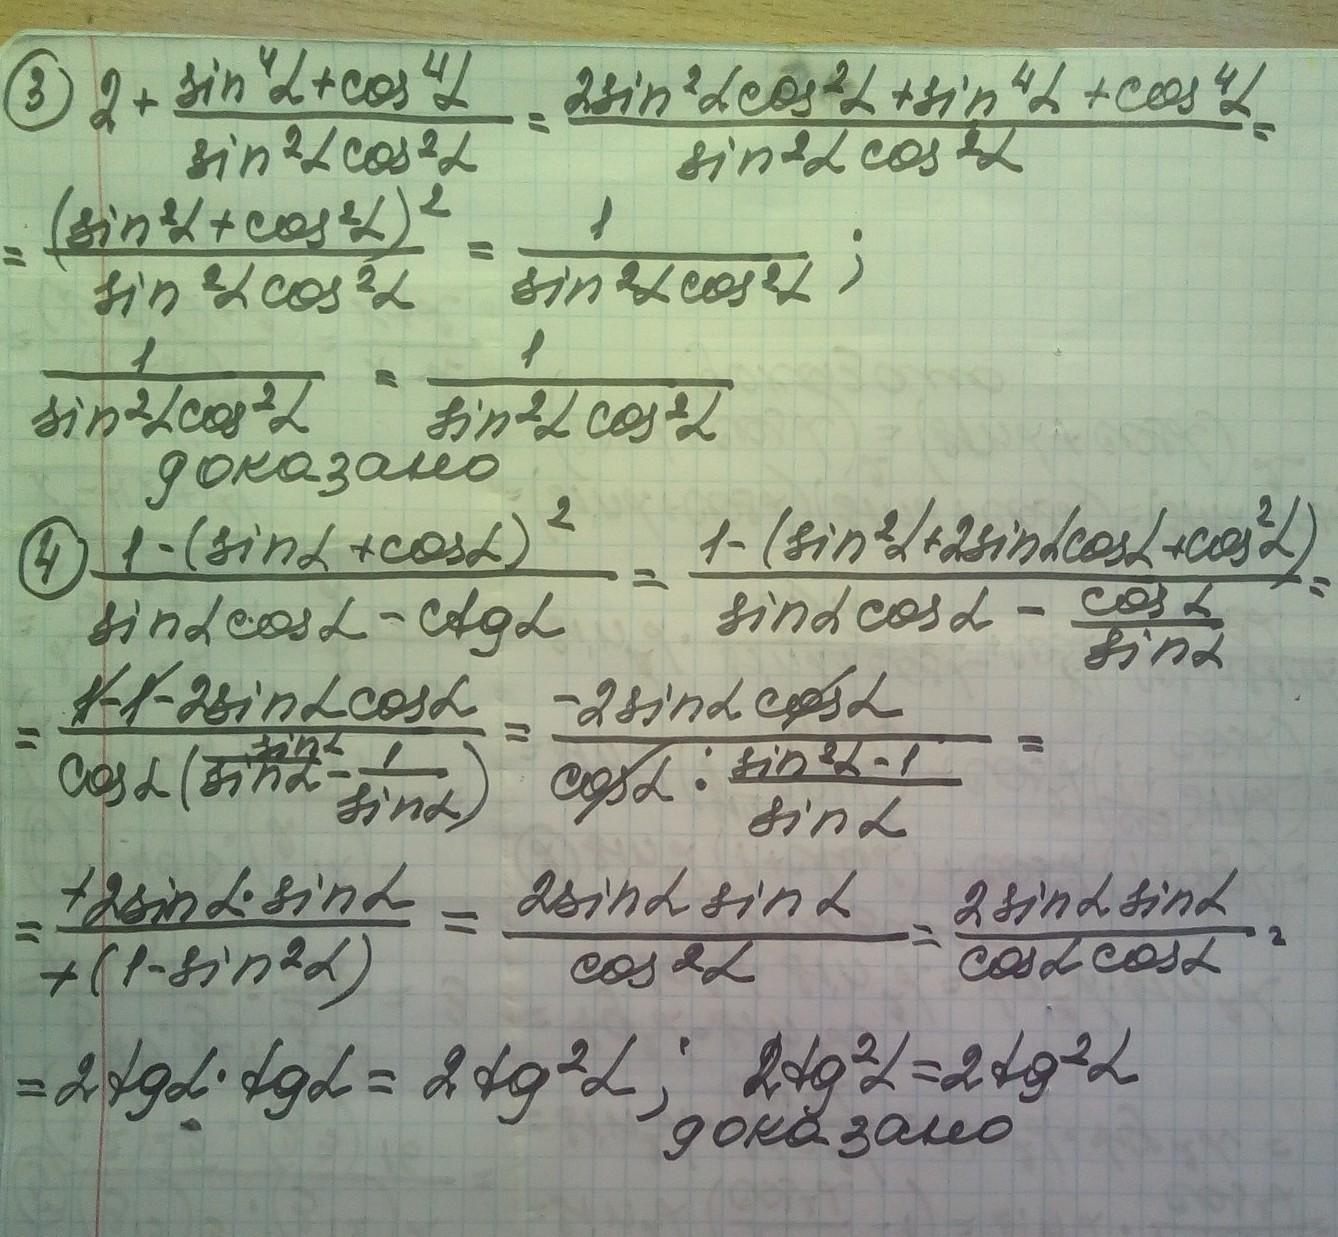 ③ 2 + (sin⁴α + cos⁴α)/(sin²α cos²α) = (2sin²α cos²α + sin⁴α + cos⁴α)/(sin²α cos²α) =
= (sin²α + cos²α)²/(sin²α cos²α) = 1/(sin²α cos²α) ;
1/(sin²α cos²α) = 1/(sin²α cos²α)
доказано
④ (1 - (sinα + cosα)²)/(sinα cosα - ctgα) = (1 - (sin²α + 2sinα cosα + cos²α))/(sinα cosα - cosα/sinα) =
= (1 - 1 - 2sinα cosα)/(cosα (sinα - 1/sinα)) = (-2sinα cosα)/(cosα · (sin²α - 1)/sinα) =
= (+2sinα · sinα)/(+(1 - sin²α)) = (2sinα sinα)/(cos²α) = (2sinα sinα)/(cosα cosα) =
= 2tgα · tgα = 2tg²α ; 2tg²α = 2tg²α
доказано